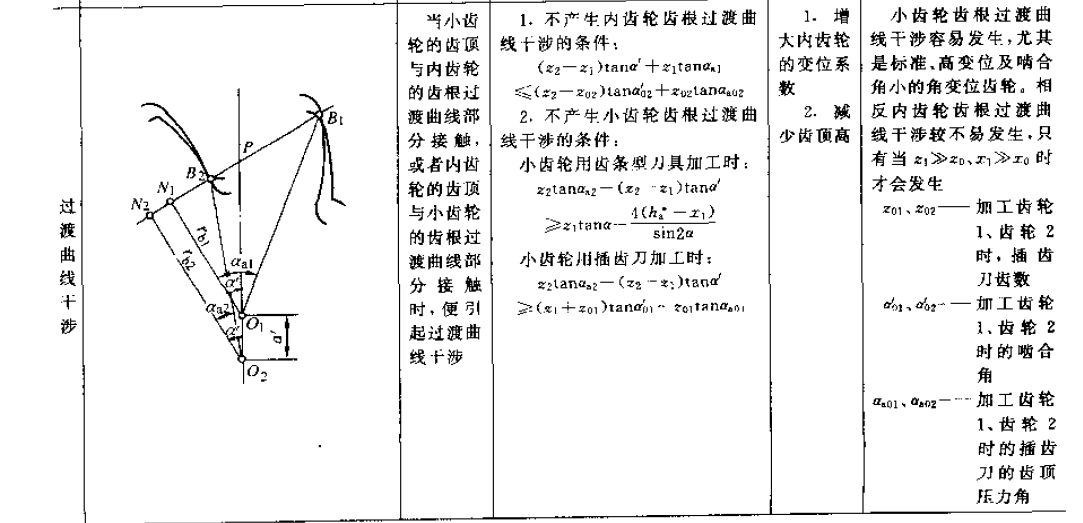 过
渡
曲
线
干
涉
B₁
P
B₂
N₁
N₂
r_b1
r_b2
α_a1
α'
α_a2
α'
O₁
a'
O₂
当小齿
轮的齿顶
与内齿轮
的齿根过
渡曲线部
分接触，
或者内齿
轮的齿顶
与小齿轮
的齿根过
渡曲线部
分接触
时，便引
起过渡曲
线干涉
1. 不产生内齿轮齿根过渡曲
线干涉的条件：
(z₂－z₁)tanα'＋z₁tanα_a1
≤(z₂－z₀₂)tanα'₀₂＋z₀₂tanα_a02
2. 不产生小齿轮齿根过渡曲
线干涉的条件：
小齿轮用齿条型刀具加工时：
z₂tanα_a2－(z₂－z₁)tanα'
≥z₁tanα－4(h_a*－x₁)/sin2α
小齿轮用插齿刀加工时：
z₂tanα_a2－(z₂－z₁)tanα'
≥(z₁＋z₀₁)tanα'₀₁－z₀₁tanα_a01
1. 增
大内齿轮
的变位系
数
2. 减
少齿顶高
小齿轮齿根过渡曲
线干涉容易发生，尤其
是标准、高变位及啮合
角小的角变位齿轮。相
反内齿轮齿根过渡曲
线干涉较不易发生，只
有当 z₁≫z₀、x₁≫x₀ 时
才会发生
z₀₁、z₀₂——加工齿轮
1、齿轮 2
时，插齿
刀齿数
α'₀₁、α'₀₂——加工齿轮
1、齿轮 2
时的啮合
角
α_a01、α_a02——加工齿轮
1、齿轮 2
时的插齿
刀的齿顶
压力角